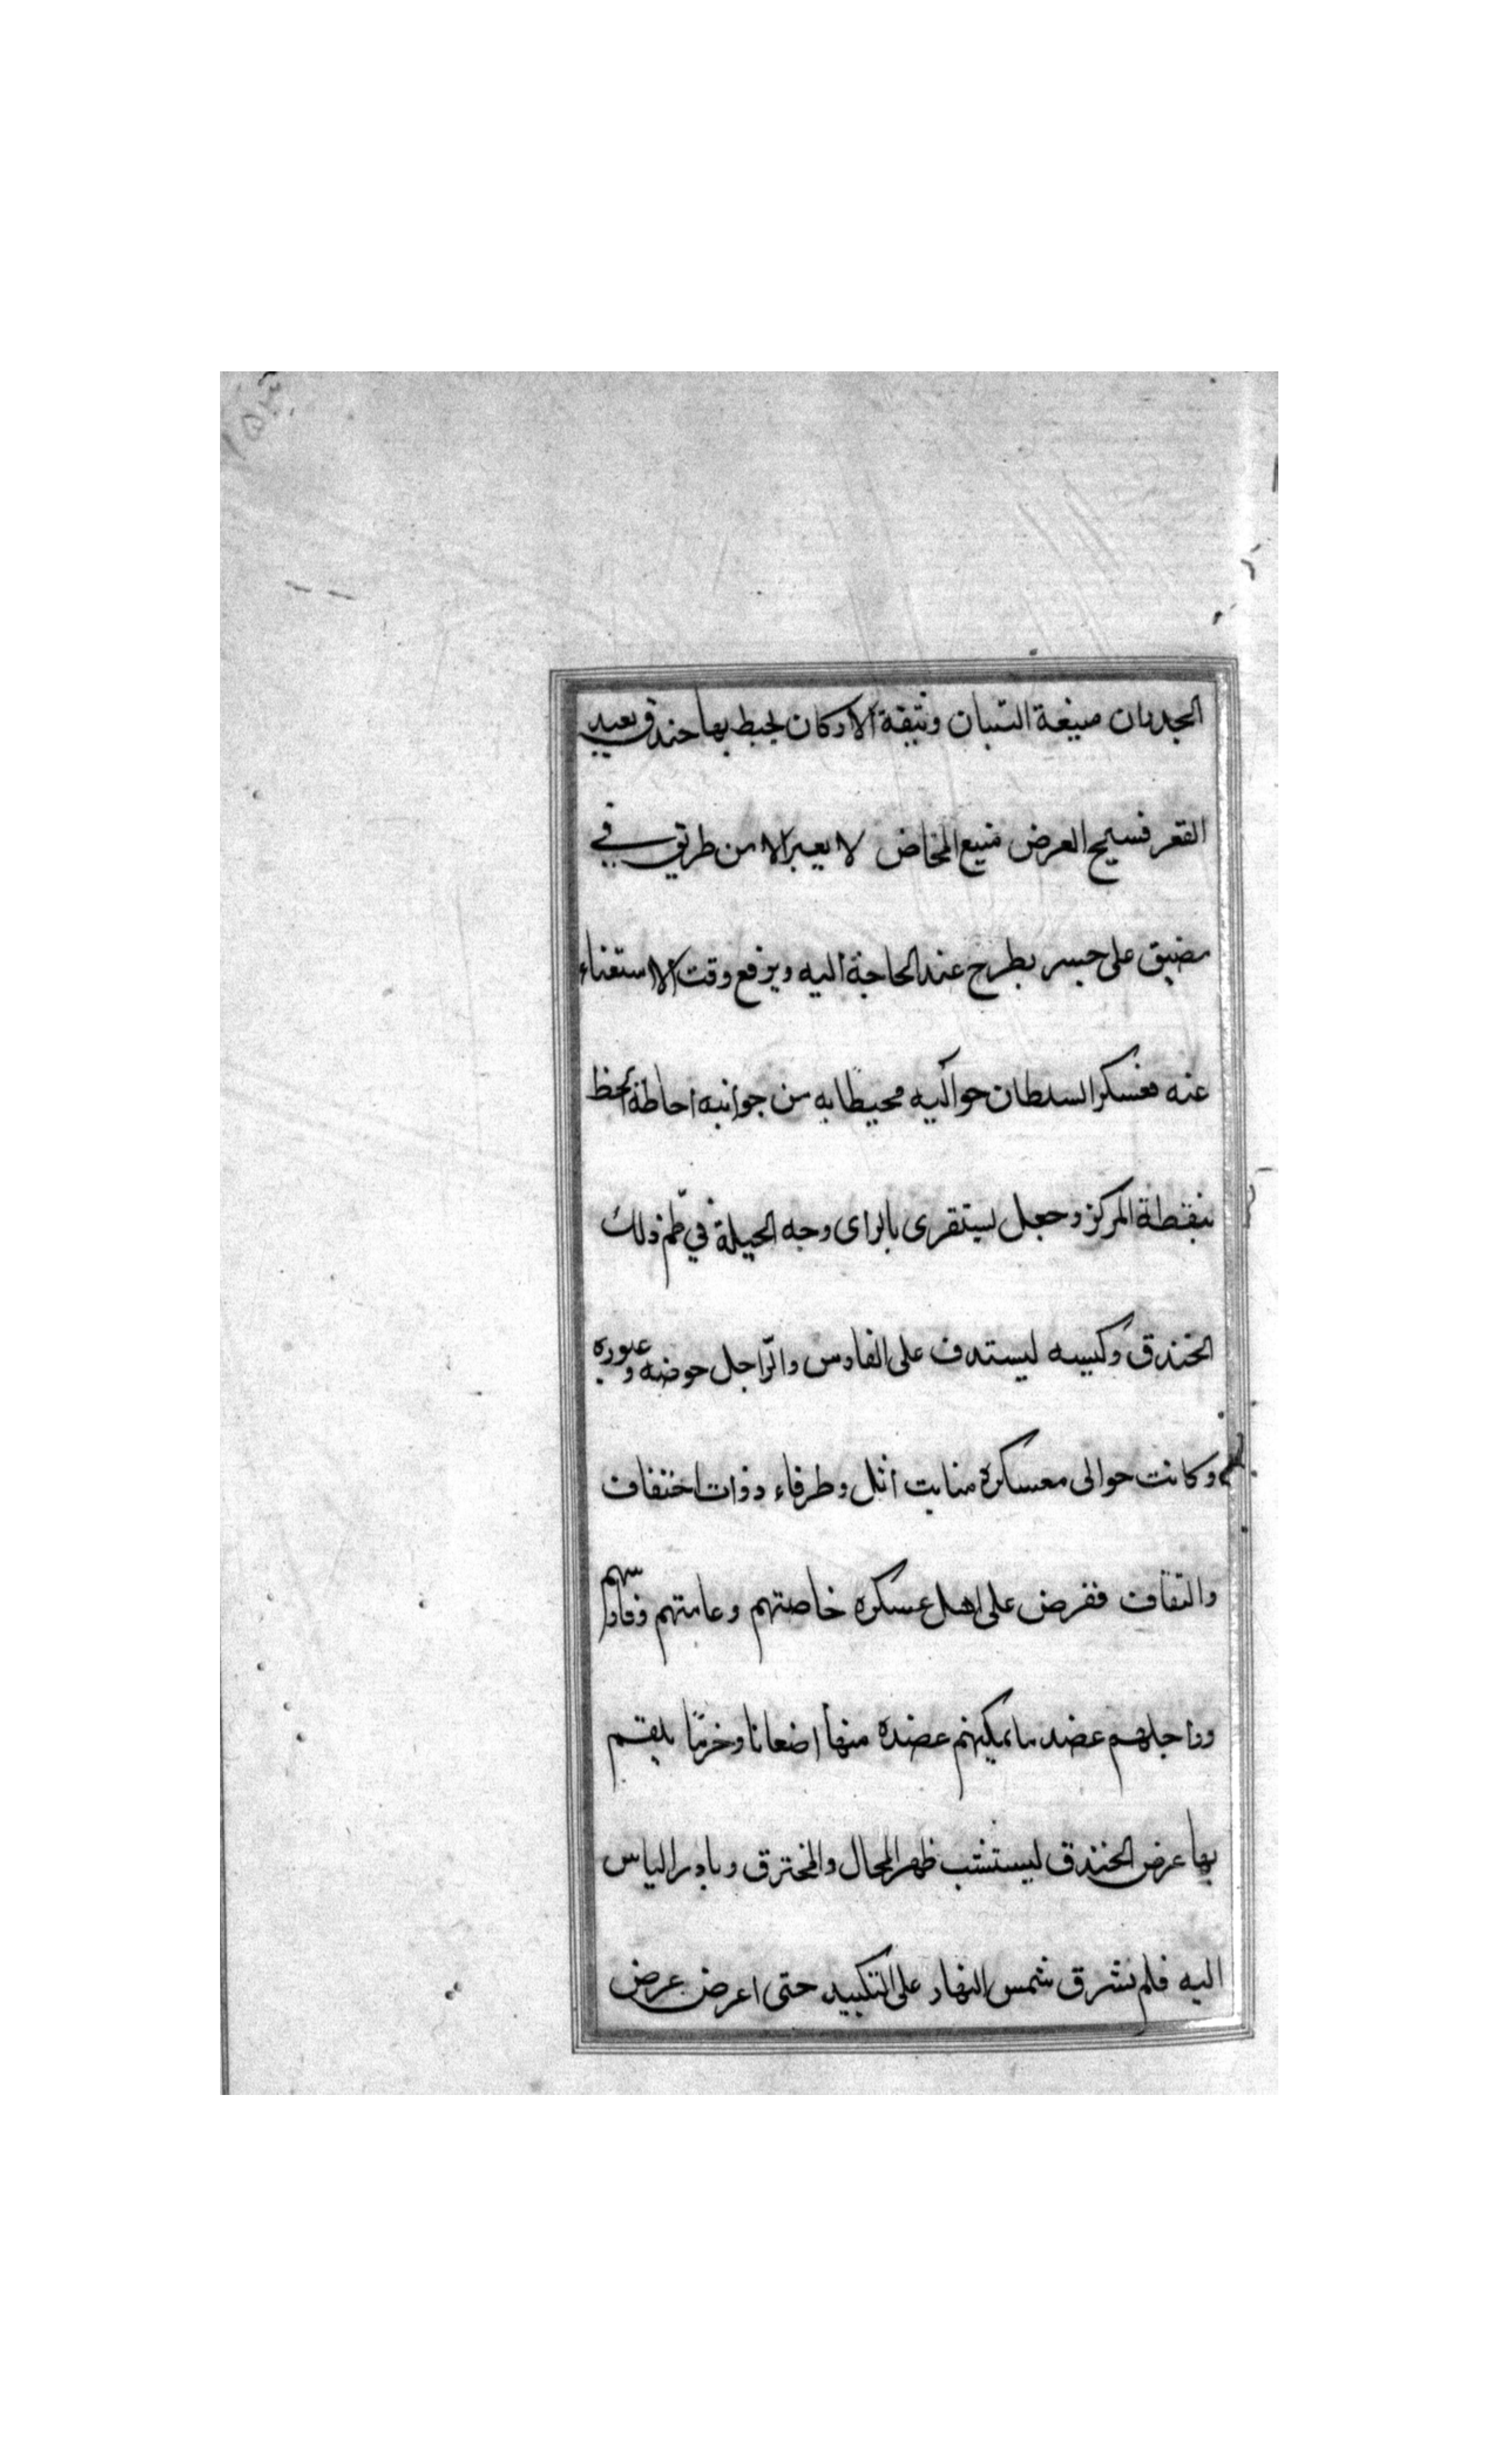 الجدران منيعة البنيان وثيقة الاركان يحيط بها خندق بعيد
القعر فسيح العرض منيع المخاض لا يعبر الا من طريق في
مضيق على جسر يطرح عند الحاجة اليه ويرفع وقت الاستغناء
عنه فعسكر السلطان حواليه محيطا به من جوانبه احاطة المحظ
بنقطة المركز وجعل يستقرى بالراى وجه الحيلة في طم ذلك
الخندق وكبسه ليستدف على الفارس والراجل خوضه وعبوره
وكانت حوالى معسكره منابت اثل وطرفاء ذوات احتفاف
والتفاف ففرض على اهل عسكره خاصتهم وعامتهم وفارسهم
وراجلهم عضد ما يمكنهم عضده منها اضغاثا وحزما يلقم
بها عرض الخندق ليستتب ظهر المجال والمخترق وبادر الناس
اليه فلم تشرق شمس النهار على التكبيد حتى اعرض عرض